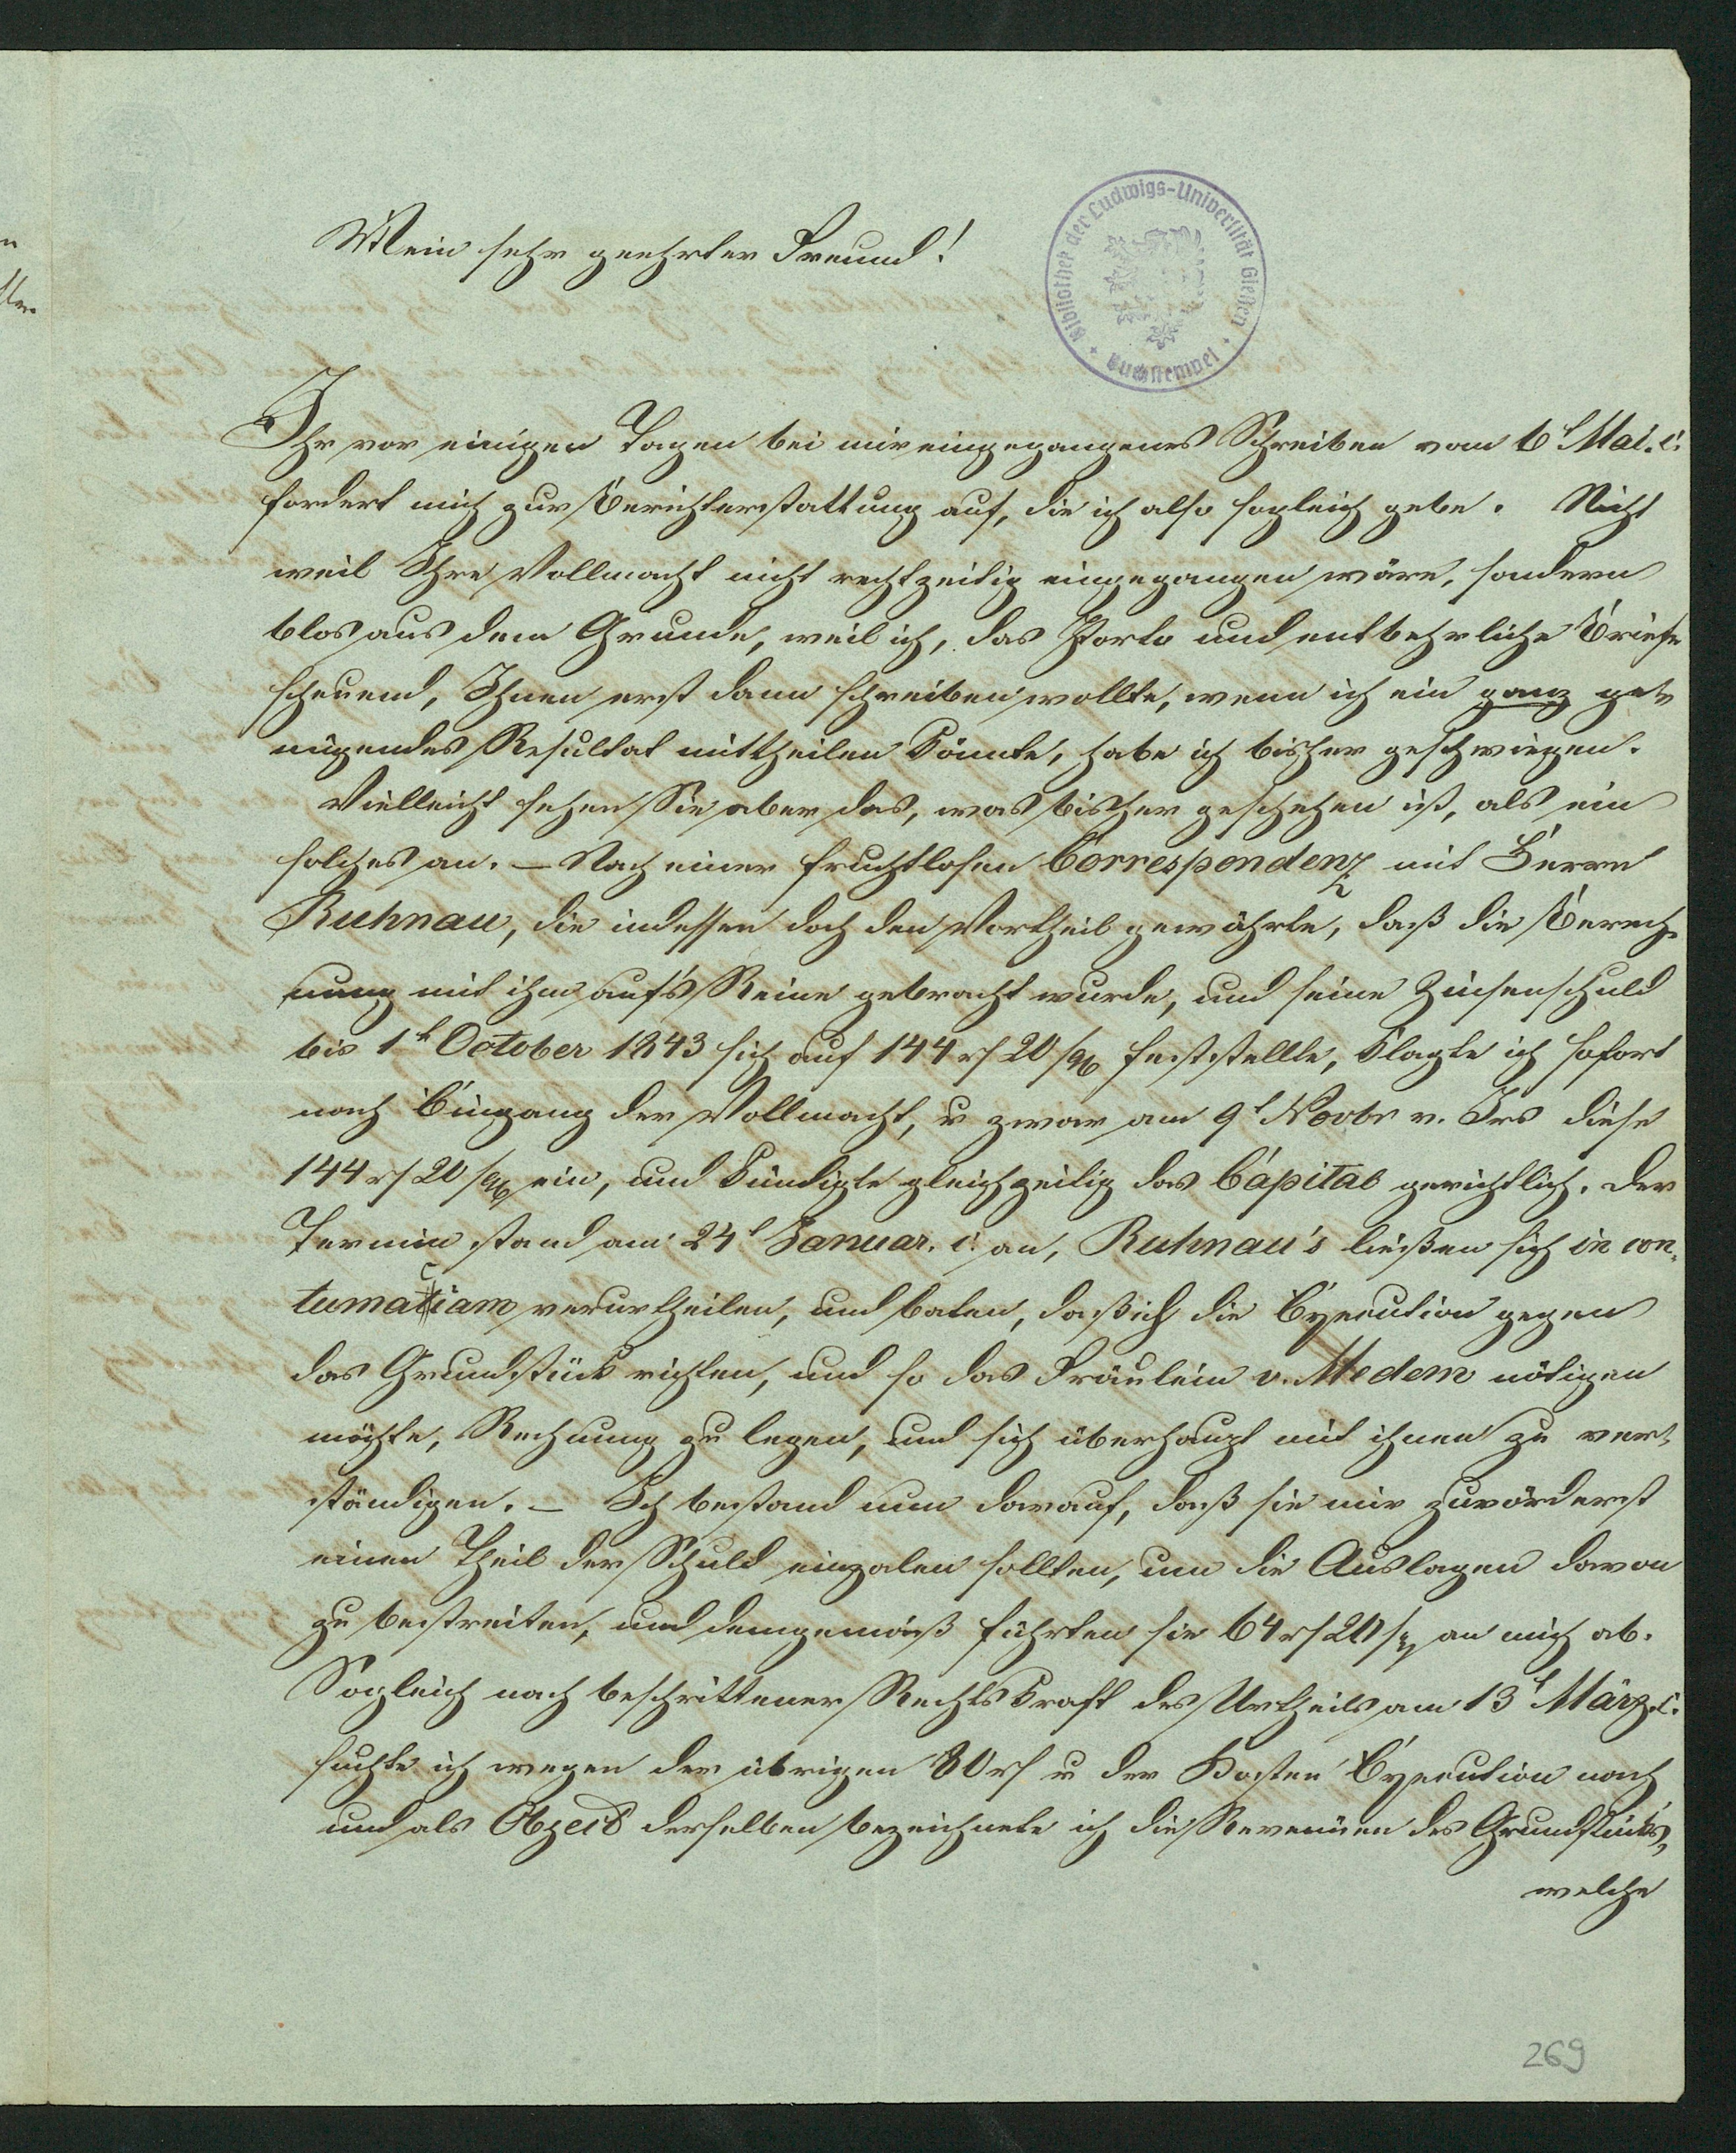 Mein sehr geehrter Freund!
Bibliothek der Ludwigs-Universität Gießen
Buchstempel
Ihr vor einigen Tagen bei mir eingegangenes Schreiben vom 6t Mai. c.
fordert mich zur Berichterstattung auf, die ich also sogleich gebe. Nicht
weil Ihre Vollmacht nicht rechtzeitig eingegangen wäre, sondern
blos aus dem Grunde, weil ich, das Porto und entbehrliche Briefe
scheuend, Ihnen erst dann schreiben wollte, wenn ich ein ganz ge-
nügendes Resultat mittheilen könnte, habe ich bisher geschwiegen.
Vielleicht sehen Sie aber das, was bisher geschehen ist, als ein
solches an. – Nach einer fruchtlosen Correspondenz mit Herrn
Ruhnau, die indessen doch den Vortheil gewährte, daß die Berech-
nung mit ihm auf's Reine gebracht wurde, und seine Zinsenschuld
bis 1t October 1843 sich auf 144 rf 20 sg feststellte, klagte ich sofort
nach Eingang der Vollmacht, u zwar am 9t Novbr v. Jrs diese
144 rf 20 sg ein, und kündigte gleichzeitig das Capital gerichtlich. Der
Termin stand am 24t Januar. c. an, Ruhnau's ließen sich in con-
tumaciam verurtheilen, und baten, daß ich die Execution gegen
das Grundstück richten, und so das Fräulein v. Medem nötigen
möchte, Rechnung zu legen, und sich überhaupt mit ihnen zu ver-
ständigen. – Ich bestand nun darauf, daß sie mir zuvörderst
einen Theil der Schuld einzalen sollten, um die Auslagen davon
zu bestreiten, und demgemäß führten sie 64 rf 20 sg an mich ab.
Sogleich nach beschrittener Rechtskraft des Urtheils am 13t März. c.
suchte ich wegen der übrigen 80 rf u der Kosten Execution nach
und als Object derselben bezeichnete ich die Revenüen des Grundstücks,
welche
269